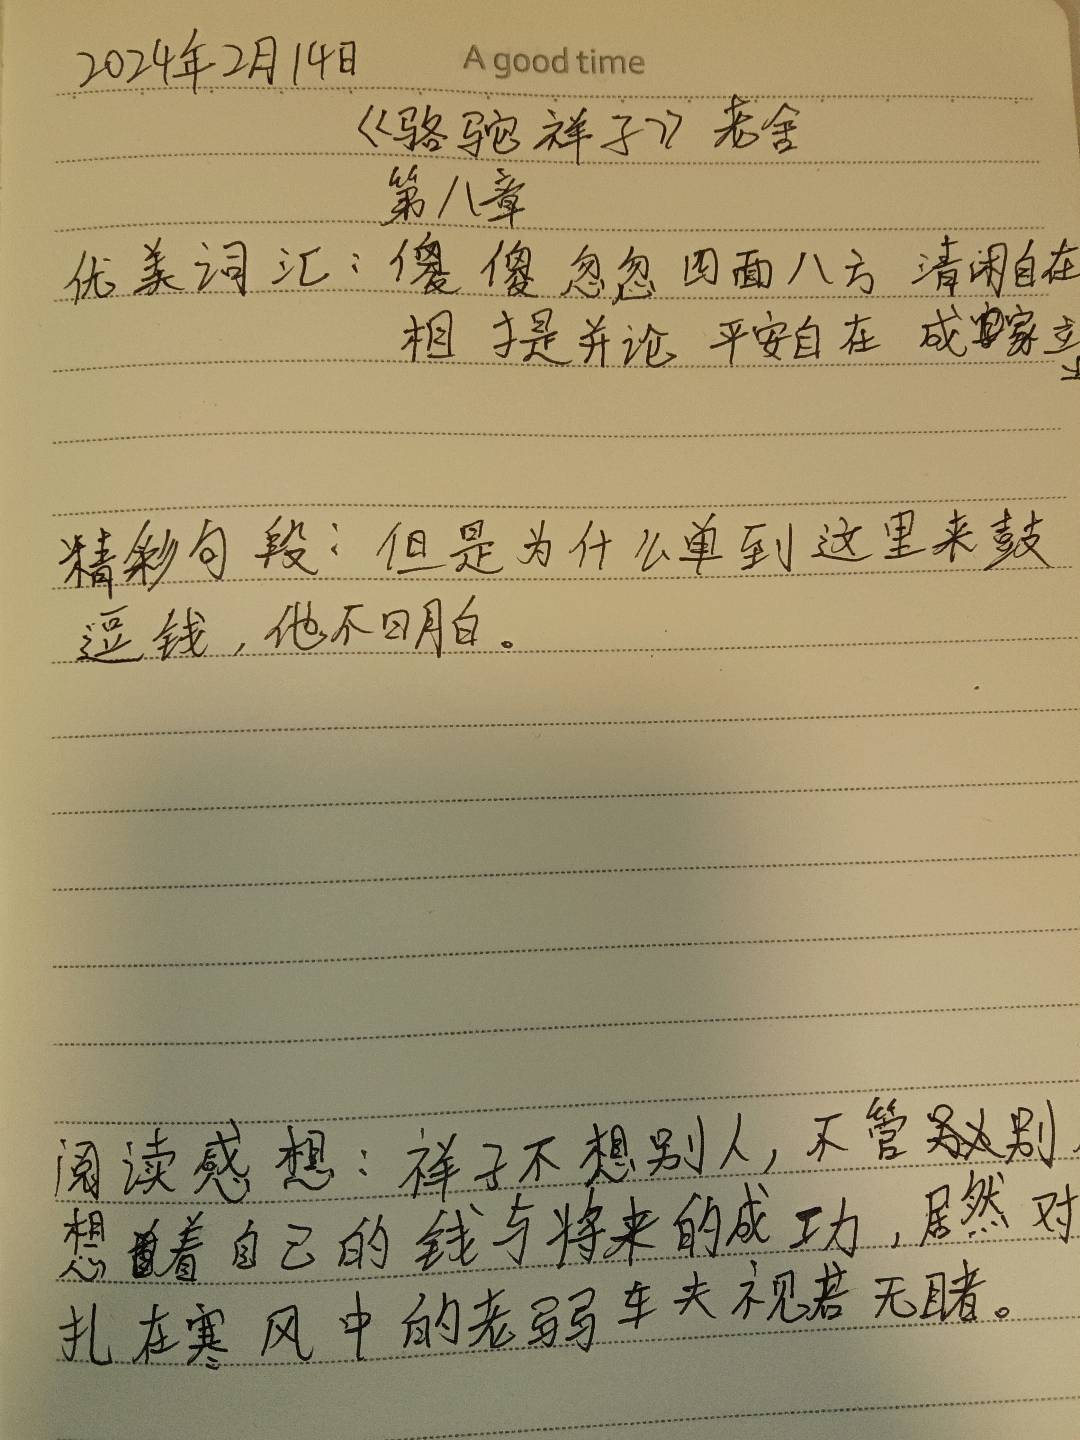 2024年2月14日 A good time
《骆驼祥子》老舍
第八章
优美词汇：傻傻忽忽 四面八方 清闲自在
相提并论 平安自在 成家立
精彩句段：但是为什么单到这里来鼓
逗钱，他不明白。
阅读感想：祥子不想别人，不管别
想着自己的钱与将来的成功，居然对
扎在寒风中的老弱车夫视若无睹。